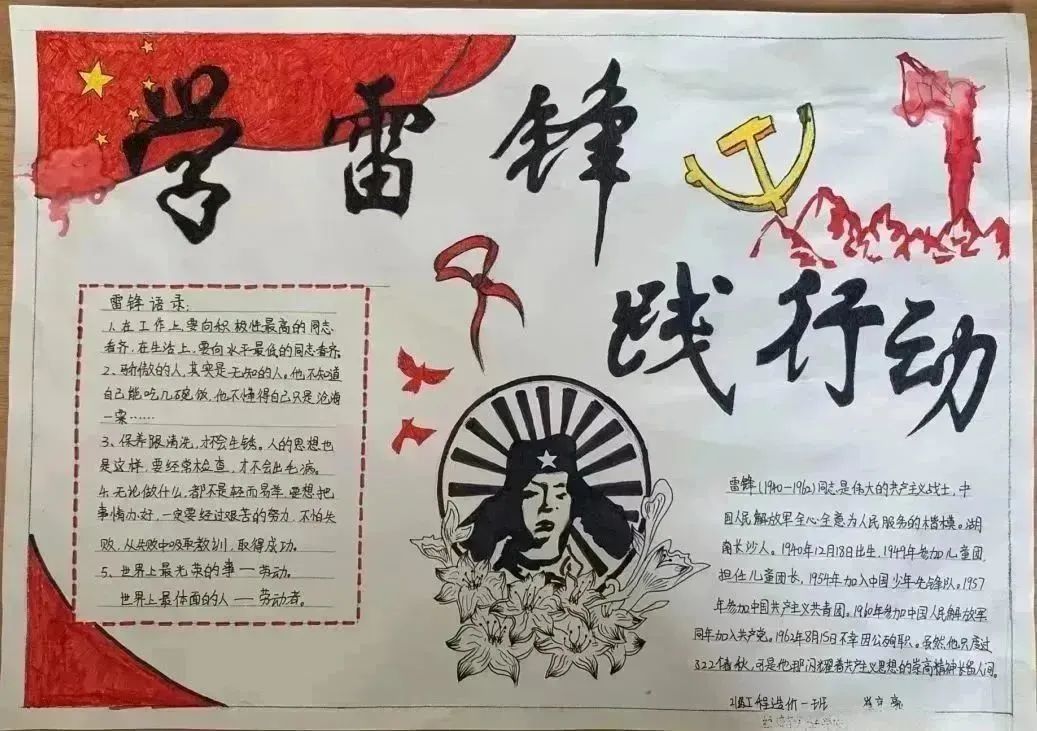 学雷锋
践行动
雷锋语录:
1、在工作上,要向积极性最高的同志
看齐,在生活上,要向水平最低的同志看齐
2、骄傲的人,其实是无知的人。他不知道
自己能吃几碗饭,他不懂得自己只是沧海
一粟……
3、保养跟清洗,才会生锈。人的思想也
是这样,要经常检查,才不会出毛病。
4、无论做什么,都不是轻而易举,要想把
事情办好,一定要经过艰苦的努力,不怕失
败,从失败中吸取教训,取得成功。
5、世界上最光荣的事——劳动。
世界上最体面的人——劳动者。
雷锋(1940—1962)同志,是伟大的共产主义战士,中
国人民解放军全心全意为人民服务的楷模。湖
南长沙人。1940年12月18日出生,1949年参加儿童团,
担任儿童团长,1954年加入中国少年先锋队。1957
年参加中国共产主义共青团。1960年参加中国人民解放军
同年加入共产党。1962年8月15日不幸因公殉职。虽然他只度过
322个春秋,可是他那闪耀着共产主义思想的崇高精神长留人间。
工程造价一班